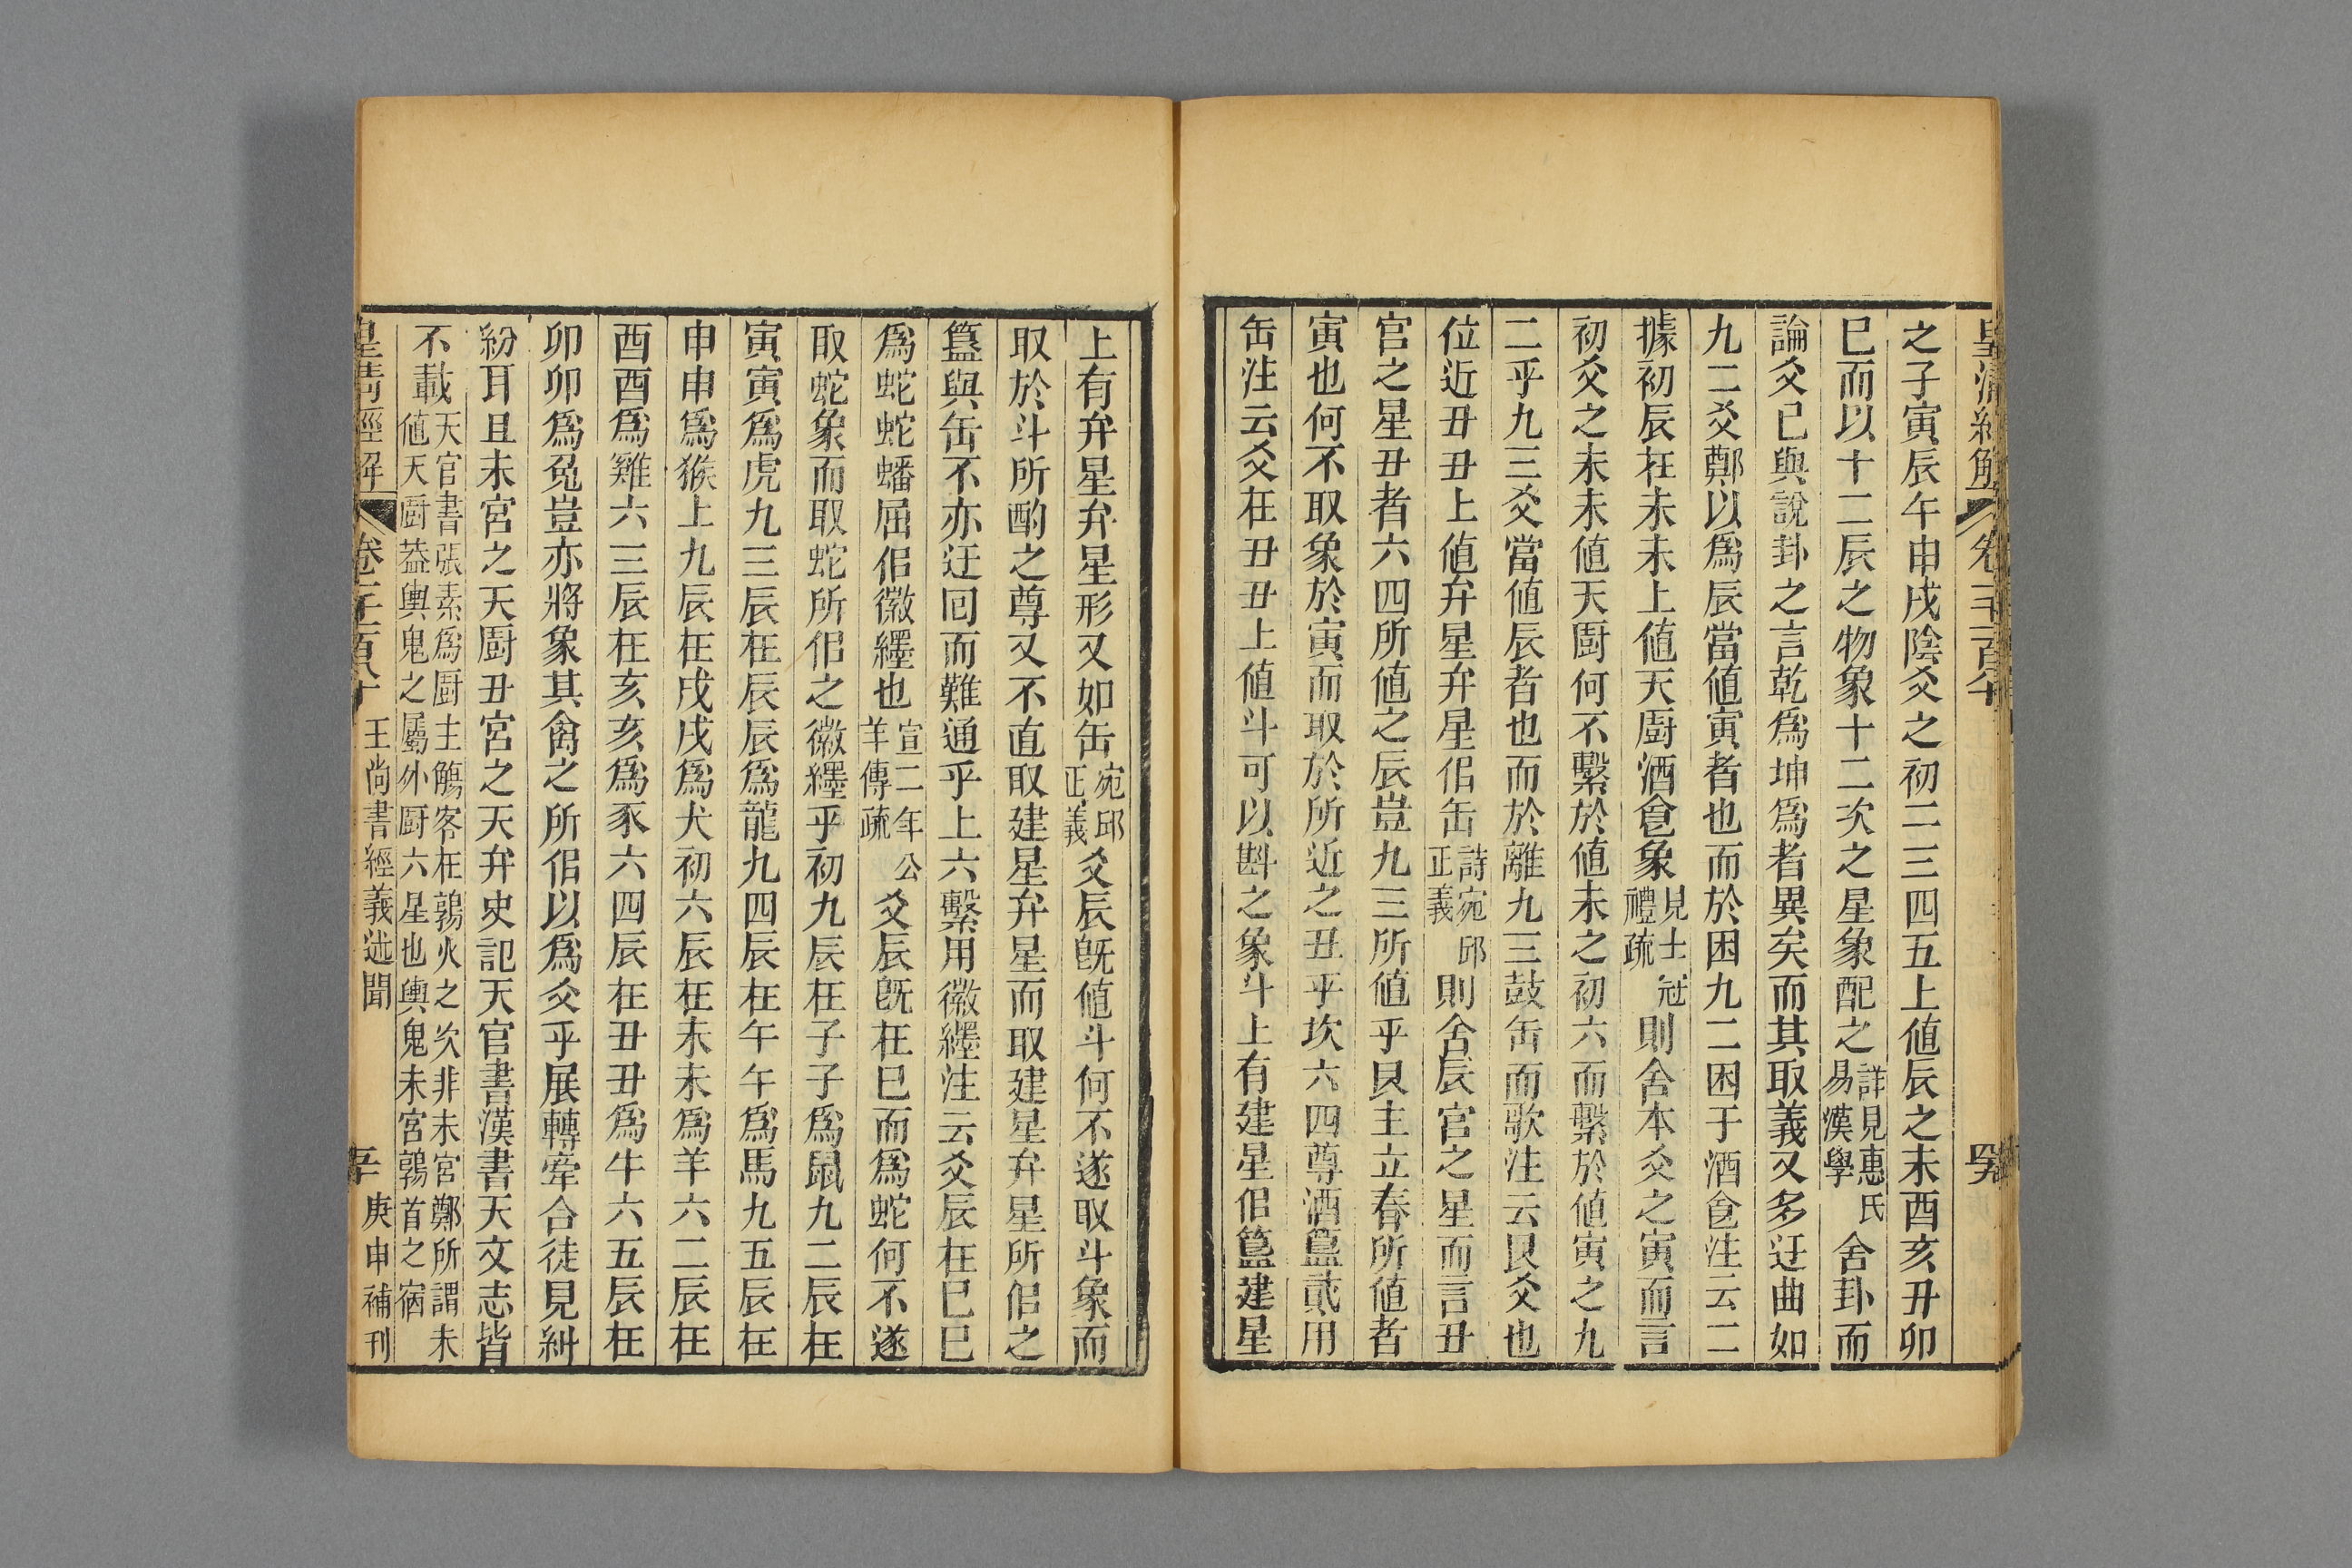 皇清經解
卷一千一百八十
之子寅辰午申戌陰爻之初二三四五上値辰之未酉亥丑卯
巳而以十二辰之物象十二次之星象配之詳見惠氏易漢學舍卦而
論爻已與說卦之言乾爲坤爲者異矣而其取義又多迂曲如
九二爻鄭以爲辰當値寅者也而於困九二困于酒食注云二
據初辰在未未上値天廚酒食象見士冠禮疏則舍本爻之寅而言
初爻之未未値天廚何不繫於値未之初六而繫於値寅之九
二乎九三爻當値辰者也而於離九三鼓缶而歌注云艮爻也
位近丑丑上値弁星弁星佀缶詩宛邱正義則舍辰宮之星而言丑
宮之星丑者六四所値之辰豈九三所値乎艮主立春所値者
寅也何不取象於寅而取於所近之丑乎坎六四尊酒簋貳用
缶注云爻在丑丑上値斗可以斟之象斗上有建星佀簋建星
上有弁星弁星形又如缶宛邱正義爻辰旣値斗何不遂取斗象而
取於斗所酌之尊又不直取建星弁星而取建星弁星所佀之
簋與缶不亦迂回而難通乎上六繫用徽纆注云爻辰在巳巳
爲蛇蛇蟠屈佀徽纆也宣二年公羊傳疏爻辰旣在巳而爲蛇何不遂
取蛇象而取蛇所佀之徽纆乎初九辰在子子爲鼠九二辰在
寅寅爲虎九三辰在辰辰爲龍九四辰在午午爲馬九五辰在
申申爲猴上九辰在戌戌爲犬初六辰在未未爲羊六二辰在
酉酉爲雞六三辰在亥亥爲豕六四辰在丑丑爲牛六五辰在
卯卯爲兔豈亦將象其禽之所佀以爲爻乎展轉牽合徒見糾
紛耳且未宮之天廚丑宮之天弁史記天官書漢書天文志皆
不載天官書張素爲廚主觴客在鶉火之次非未宮鄭所謂未値天廚葢輿鬼之屬外廚六星也輿鬼未宮鶉首之宿
皇淸經解
卷一千一百八十
王尚書經義述聞
庚申補刊